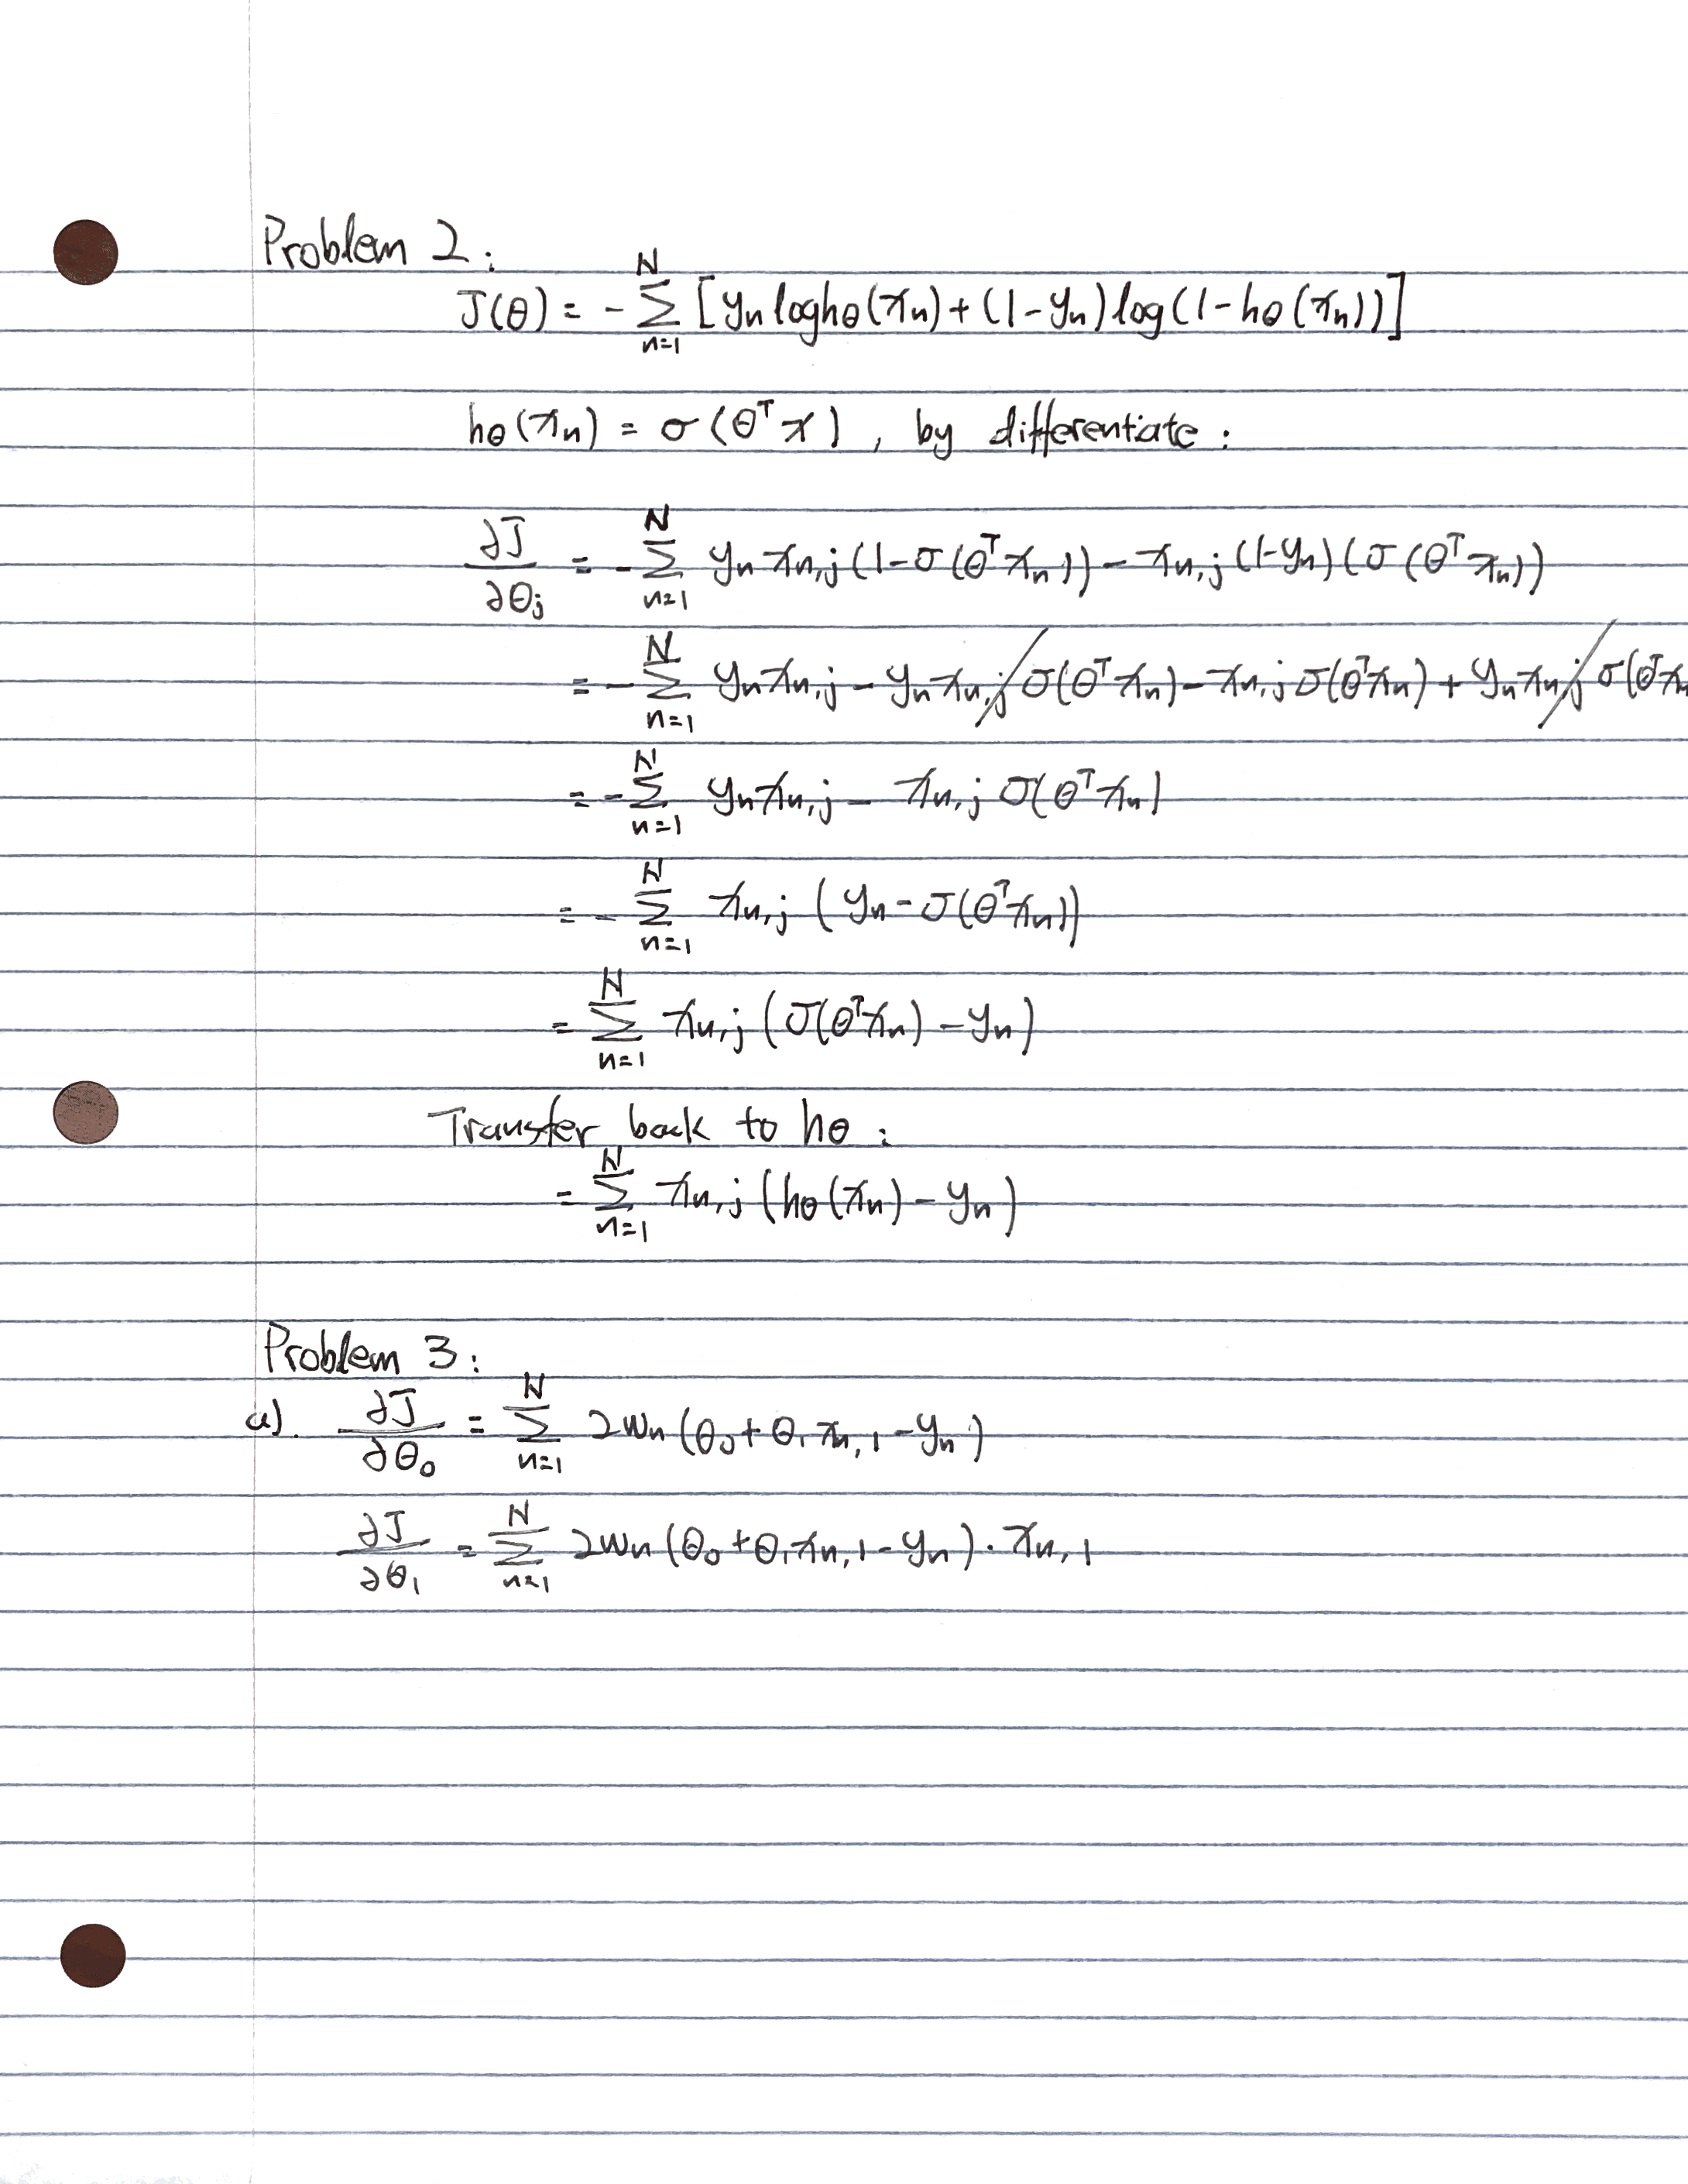 Problem 2:
J(θ) = - ∑_{n=1}^{N} [y_n log h_θ(x_n) + (1-y_n) log(1-h_θ(x_n))]
h_θ(x_n) = σ(θ^T x), by differentiate:
∂J/∂θ_j = - ∑_{n=1}^{N} y_n x_{n,j} (1-σ(θ^T x_n)) - x_{n,j} (1-y_n)(σ(θ^T x_n))
= - ∑_{n=1}^{N} y_n x_{n,j} - y_n x_{n,j} σ(θ^T x_n) - x_{n,j} σ(θ^T x_n) + y_n x_{n,j} σ(θ^T x_n
= - ∑_{n=1}^{N} y_n x_{n,j} - x_{n,j} σ(θ^T x_n)
= - ∑_{n=1}^{N} x_{n,j} (y_n - σ(θ^T x_n))
= ∑_{n=1}^{N} x_{n,j} (σ(θ^T x_n) - y_n)
Transfer back to h_θ:
= ∑_{n=1}^{N} x_{n,j} (h_θ(x_n) - y_n)
Problem 3:
a). ∂J/∂θ_0 = ∑_{n=1}^{N} 2w_n (θ_0 + θ_1 x_{n,1} - y_n)
∂J/∂θ_1 = ∑_{n=1}^{N} 2w_n (θ_0 + θ_1 x_{n,1} - y_n) · x_{n,1}